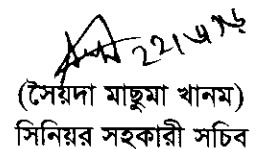 (সৈয়দা মাছুমা খানম)
সিনিয়র সহকারী সচিব